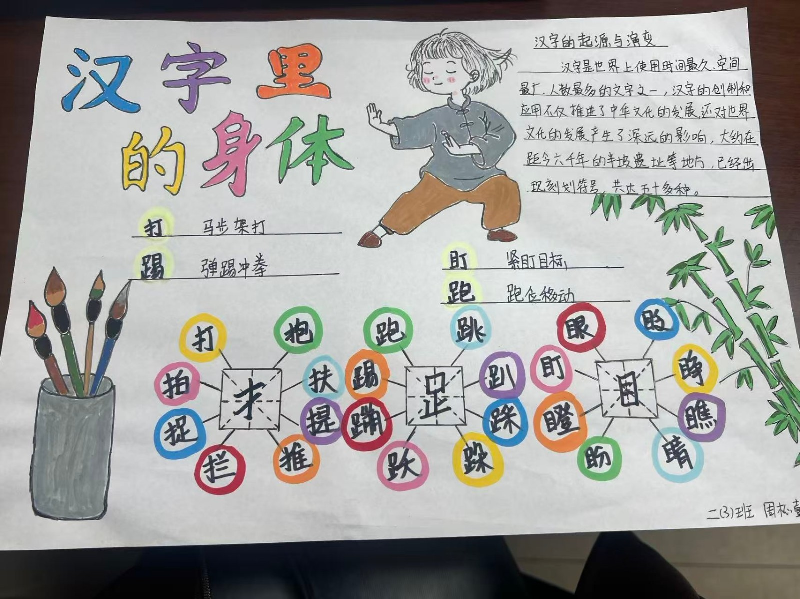 汉字里
的身体
汉字的起源与演变
汉字是世界上使用时间最久、空间
最广、人数最多的文字之一，汉字的创制和
应用不仅推进了中华文化的发展，还对世界
文化的发展产生了深远的影响，大约在
距今六千年的半坡遗址等地方，已经出
现刻划符号，共达五十多种。
打 马步架打
踢 弹踢冲拳
盯 紧盯目标
跑 跑位移动
扌
打
抱
拍
扶
捉
提
拦
推
足
跑
跳
踢
趴
蹦
踩
跃
跺
目
眼
盯
瞪
瞧
盼
睛
二(3)班